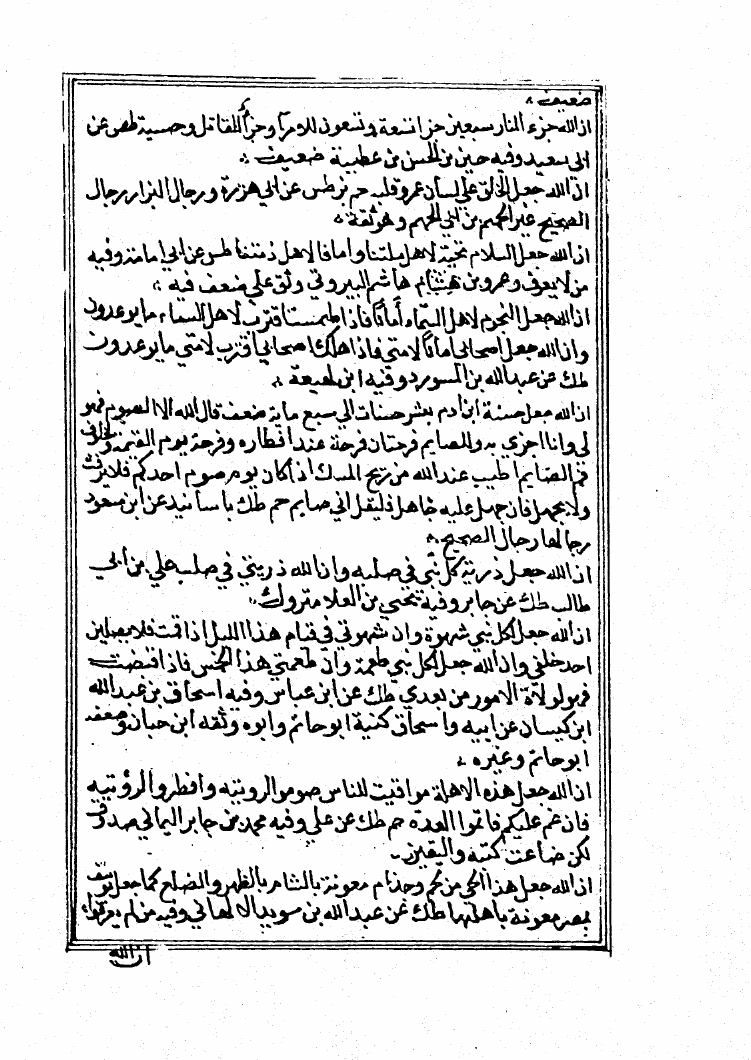 ضعيف
ان الله جزء النار سبعين جزا تسعة وتسعون للامر وجزأ للقاتل وحسبه طص عن
ابي سعيد وفيه حسين بن الحسن بن عطية ضعيف
ان الله جعل الحق على لسان عمر وقلبه حم بز طس عن ابي هريرة ورجال البزار رجال
الصحيح غير الجهم بن ابي الجهم وهو ثقة
ان الله جعل السلام تحية لاهل ملتنا وامانا لاهل ذمتنا طس عن ابي امامة وفيه
من لا يعرف وعمرو بن هشام هاشم البيروتي وثق على ضعف فيه
ان الله جعل النجوم لاهل السماء أمانًا فاذا طمست اقترب لاهل السماء ما يوعدون
وان الله جعل اصحابي امانا لامتي فاذا هلك اصحابي اقترب لامتي ما يوعدون
طك عن عبد الله بن المسورد وفيه ابن لهيعة
ان الله جعل حسنة ابن ادم بعشر حسنات الى سبع مائة ضعف قال الله الا الصوم فهو
لي وانا اجزي به وللصايم فرحتان فرحة عند افطاره وفرحة يوم القيمة ولخلوف
فم الصايم اطيب عند الله من ريح المسك اذ اكان يوم صوم احدكم فلا يرفث
ولا يجهل فان جهل عليه جاهل فليقل اني صايم حم طك باسانيد عن ابن مسعود
رجالها رجال الصحيح
ان الله جعل ذرية كل نبي في صلبه وان الله ذريتي في صلب علي بن ابي
طالب طك عن جابر وفيه يحيى بن العلا متروك
ان الله جعل لكل نبي شهوة وان شهوتي في قيام هذا الليل اذا قمت فلا يصلين
احد خلفي وان الله جعل لكل نبي طعمة وان طعمتي هذا الخمس فاذا قبضت
فهو لولاة الامور من بعدي طك عن ابن عباس وفيه اسحاق بن عبد الله
ابن كيسان عن ابيه واسحاق كنية ابو حاتم وابوه وثقه ابن حبان وضعفه
ابو حاتم وغيره
ان الله جعل هذه الاهلة مواقيت للناس صوموا لرويته وافطروا لرؤيته
فان غم عليكم فاتموا العدة حم طك عن علي وفيه محمد بن جابر اليمامي صدوق
لكن ضاعت كتبه والتقين
ان الله جعل هذا الحي من لخم وجذام معونة بالشام بالظهر والضلع كما جعل يوسف
بمصر معونة باهلها طك عن عبد الله بن سويد الالهاني وفيه من لم يعرفوا
ان الله